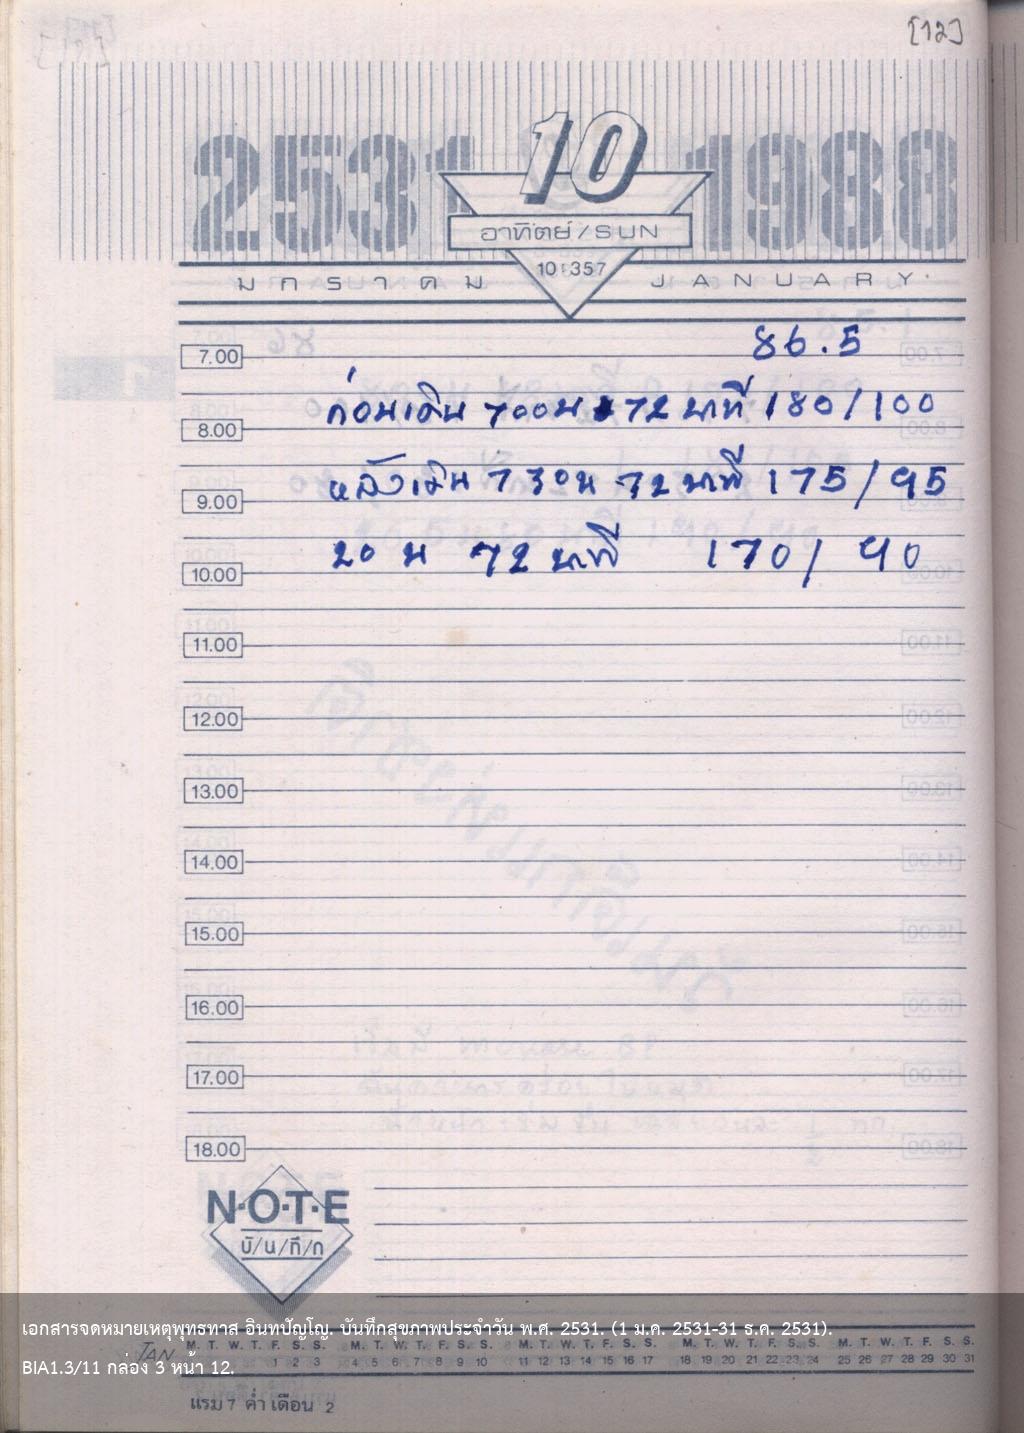 [12]
2531 10 1988
อาทิตย์/SUN
10:357
มกราคม JANUARY
86.5
7.00
ก่อนเดิน 700น 72 นาที 180/100
8.00
หลังเดิน 730น 72 นาที 175/95
9.00
20 น 72 นาที 170/90
10.00
11.00
12.00
13.00
14.00
15.00
16.00
17.00
18.00
N·O·T·E
บั/น/ทึ/ก
เอกสารจดหมายเหตุพุทธทาส อินทปัญโญ. บันทึกสุขภาพประจำวัน พ.ศ. 2531. (1 ม.ค. 2531-31 ธ.ค. 2531).
JAN M. T. W. T. F. S. S. M. T. W. T. F. S. S. M. T. W. T. F. S. S. M. T. W. T. F. S. S. M. T. W. T. F. S. S.
1 2 3 4 5 6 7 8 9 10 11 12 13 14 15 16 17 18 19 20 21 22 23 24 25 26 27 28 29 30 31
BIA1.3/11 กล่อง 3 หน้า 12.
แรม 7 ค่ำ เดือน 2